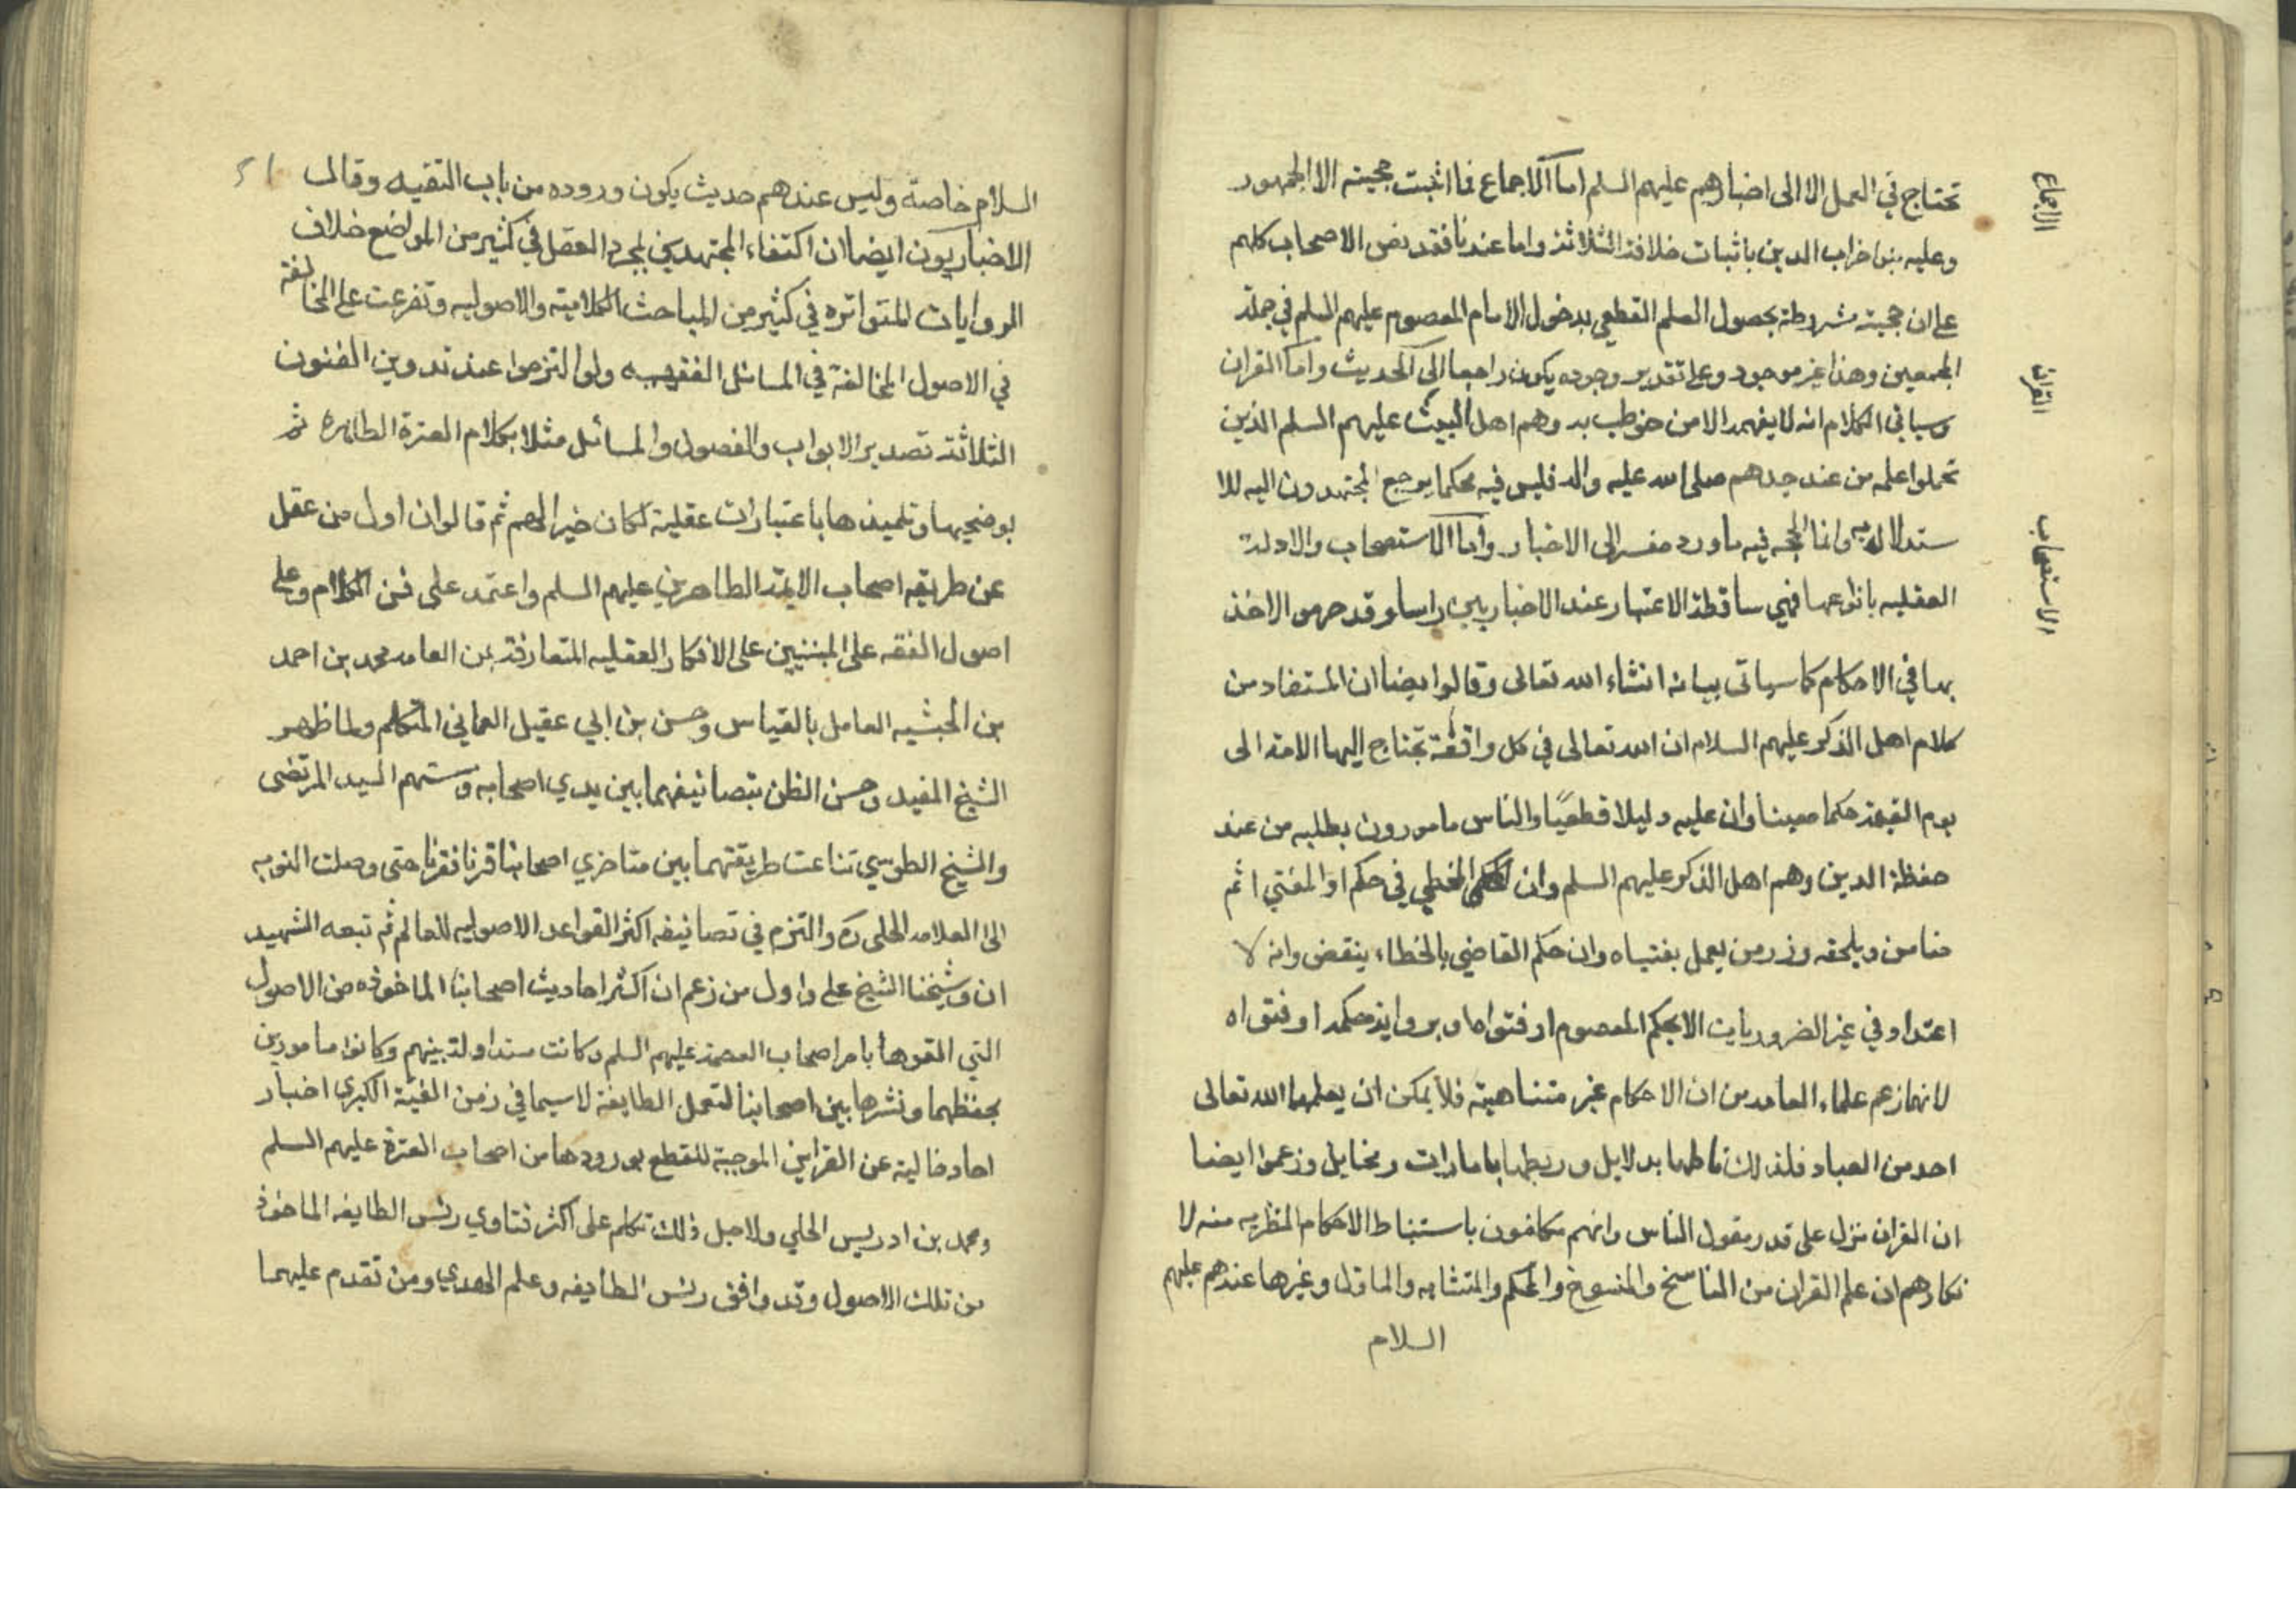 تحتاج في العمل الا الى اخبارهم عليهم السلم اما الاجماع فما اثبت حجيته الا الجمهور
وعليه بنوا خراب الدين باثبات خلافة الثلاثة واما عندنا فقد نص الاصحاب كلهم
على ان حجيته مشروطة بحصول العلم القطعي بدخول الامام المعصوم عليهم السلم في جملة
المجمعين وهذا غير موجود وعلى تقدير وجوده يكون راجعا الى الحديث واما القران
وسياتي الكلام انه لا يفهمه الا من خوطب به وهم اهل البيت عليهم السلم الذين
تحملوا علمه من عند جدهم صلى الله عليه واله فليس فيه محكما يرجع المجتهدون اليه للا
ستدلال به وانما الحجه فيه ما ورد مفسرا في الاخبار واما الاستصحاب والادلة
العقليه بانواعها فهي ساقطة الاعتبار عند الاخباريين راسا وقد حرموا الاخذ
بها في الاحكام كما سياتي بيانه انشاء الله تعالى وقالوا ايضا ان المستفاد من
كلام اهل الذكر عليهم السلام ان الله تعالى في كل واقعة تحتاج اليها الامة الى
يوم القيمة حكما معينا وان عليه دليلا قطعيًا والناس مامورون بطلبه من عند
حفظة الدين وهم اهل الذكر عليهم السلم وان المخطي في حكم او المفتي اثم
ضامن ويلحقه وزر من يعمل بفتياه وان حكم القاضي بالخطاء ينقض وانه لا
اعتداد في غير الضروريات الا بحكم المعصوم او فتواه او برواية حكمه او فتواه
لانما زعم علماء العامه من ان الاحكام غير متناهية فلا يمكن ان يعلمها الله تعالى
احد من العباد فلذلك ناطها بدلايل وربطها بامارات ومخايل وزعموا ايضا
ان القران نزل على قدر عقول الناس وانهم مكلفون باستنباط الاحكام النظريه منه لا
نكارهم ان علم القران من الناسخ والمنسوخ والمحكم والمتشابه والماول وغيرها عندهم عليهم
السلام
الاجماع
القران
الاستصحاب
السلام خاصة وليس عندهم حديث يكون وروده من باب التقيه وقال
الاخباريون ايضا ان اكتفاء المجتهدين بمجرد العقل في كثير من المواضع خلاف
الروايات المتواتره في كثير من المباحث الكلامية والاصوليه وتفرعت على المخالفة
في الاصول المخالفة في المسائل الفقهيه ولو التزموا عند تدوين الفنون
الثلاثة تصدير الابواب والفصول والمسائل مثلا بكلام العترة الطاهره ثم
بوضيحها وتلميذها باعتبارات عقلية لكان خيرا لهم ثم قالوا ان اول من عقل
عن طريقه اصحاب الايمة الطاهرين عليهم السلم واعتمد على فن الكلام وعلى
اصول الفقه على المبنيين على الافكار العقليه المتعارفة بين العامه محمد بن احمد
بن الجنيد العامل بالقياس وحسن بن ابي عقيل العماني المتكلم ولما ظهر
الشيخ المفيد وحسن الظن بتصانيفهما بين يدي اصحابه ومنهم السيد المرتضى
والشيخ الطوسي تناعت طريقتهما بين متاخري اصحابنا قرنا فقرنا حتى وصلت النوبه
الى العلامه الحلي ره والتزم في تصانيفه اكثر القواعد الاصوليه للعالم ثم تبعه الشهيد
ان وشيخنا الشيخ علي واول من زعم ان اكثر احاديث اصحابنا الماخوذه من الاصول
التي القوها بامر اصحاب العصمة عليهم السلم وكانت متداولة بينهم وكانوا مامورين
بحفظهما ونشرها بين اصحابنا لتعمل الطايفة لاسيما في زمن الغيبة الكبرى اخبار
احاد خالية عن القراين الموجبة للقطع بورودها من اصحاب العترة عليهم السلم
ومحمد بن ادريس الحلي ولاجل ذلك تكلم على اكثر فتاوي رئس الطايفه الماخوذ
من تلك الاصول وقد وافق رئس الطايفه وعلم الهدي ومن تقدم عليهما